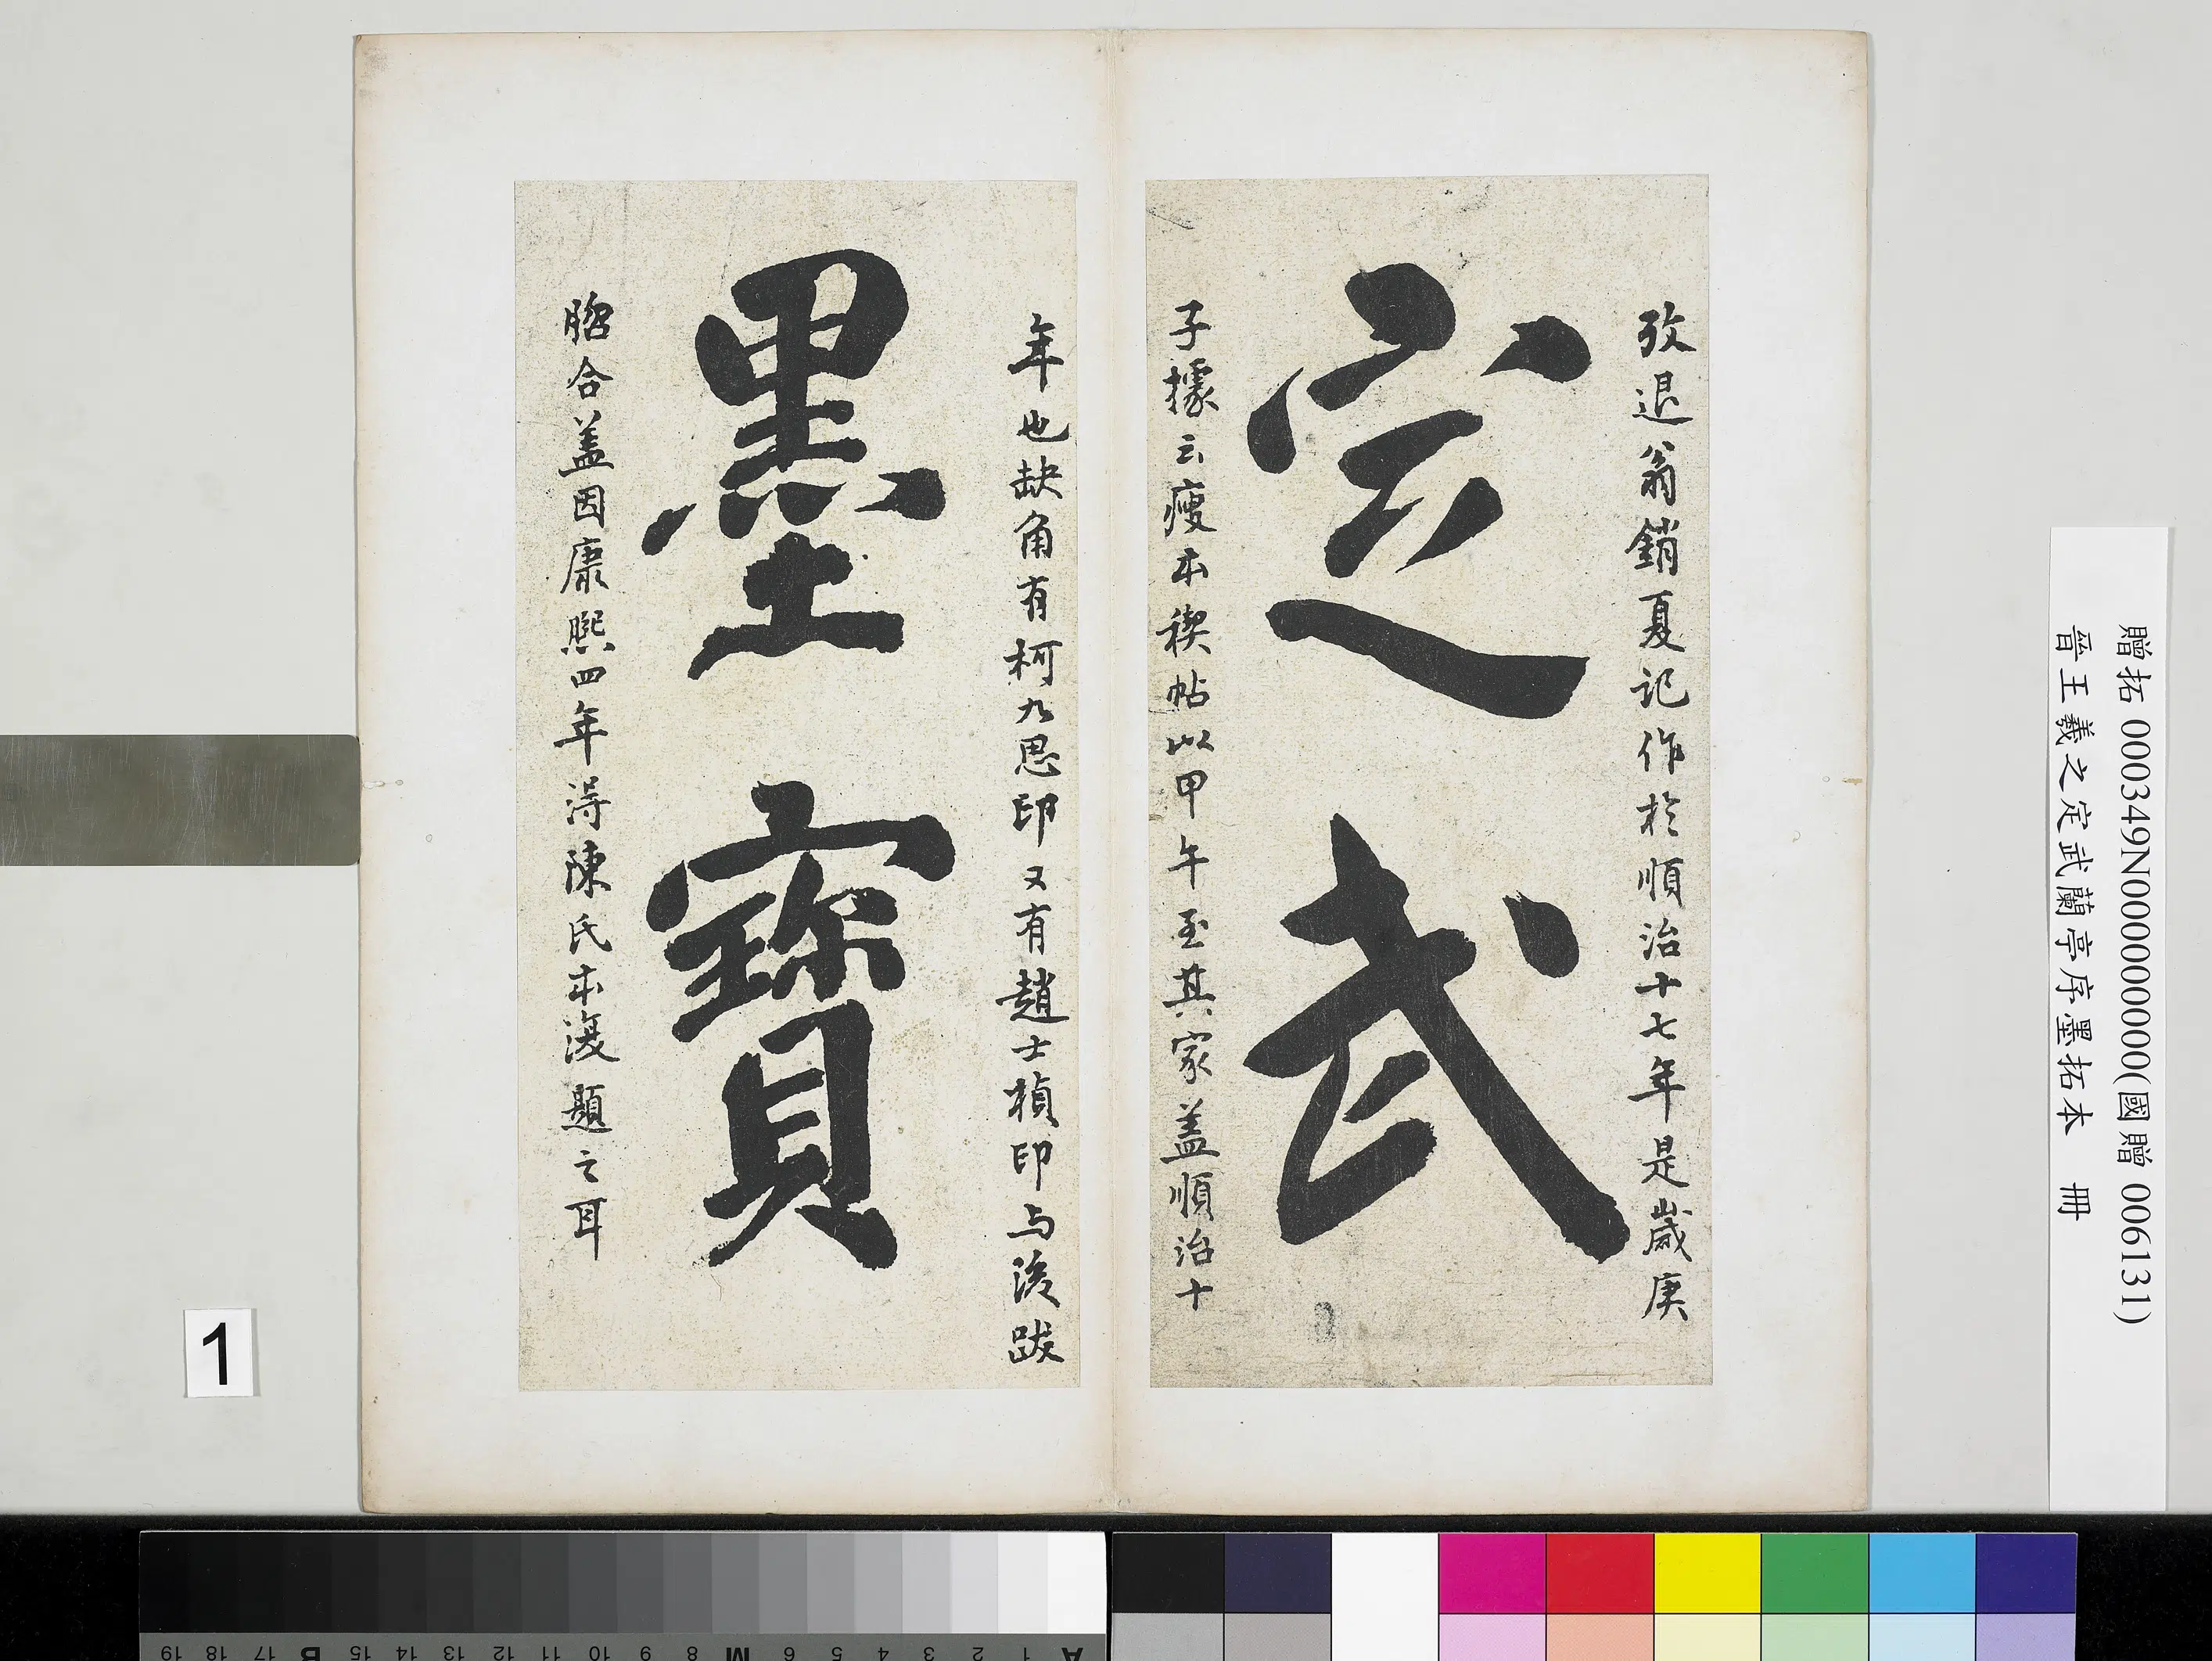 贈拓 000349N000000000(國贈 006131)
晉王羲之定武蘭亭序墨拓本 冊
攷退翁銷夏記作於順治十七年是歲庚
定武
子據云瘦本稧帖以甲午至其家盖順治十
年也缺角有柯九思印又有趙士楨印与後跋
墨寶
脗合盖因康熙四年得陳氏本復題之耳
1
A 1 2 3 4 5 6 M 8 9 10 11 12 13 14 15 B 17 18 19